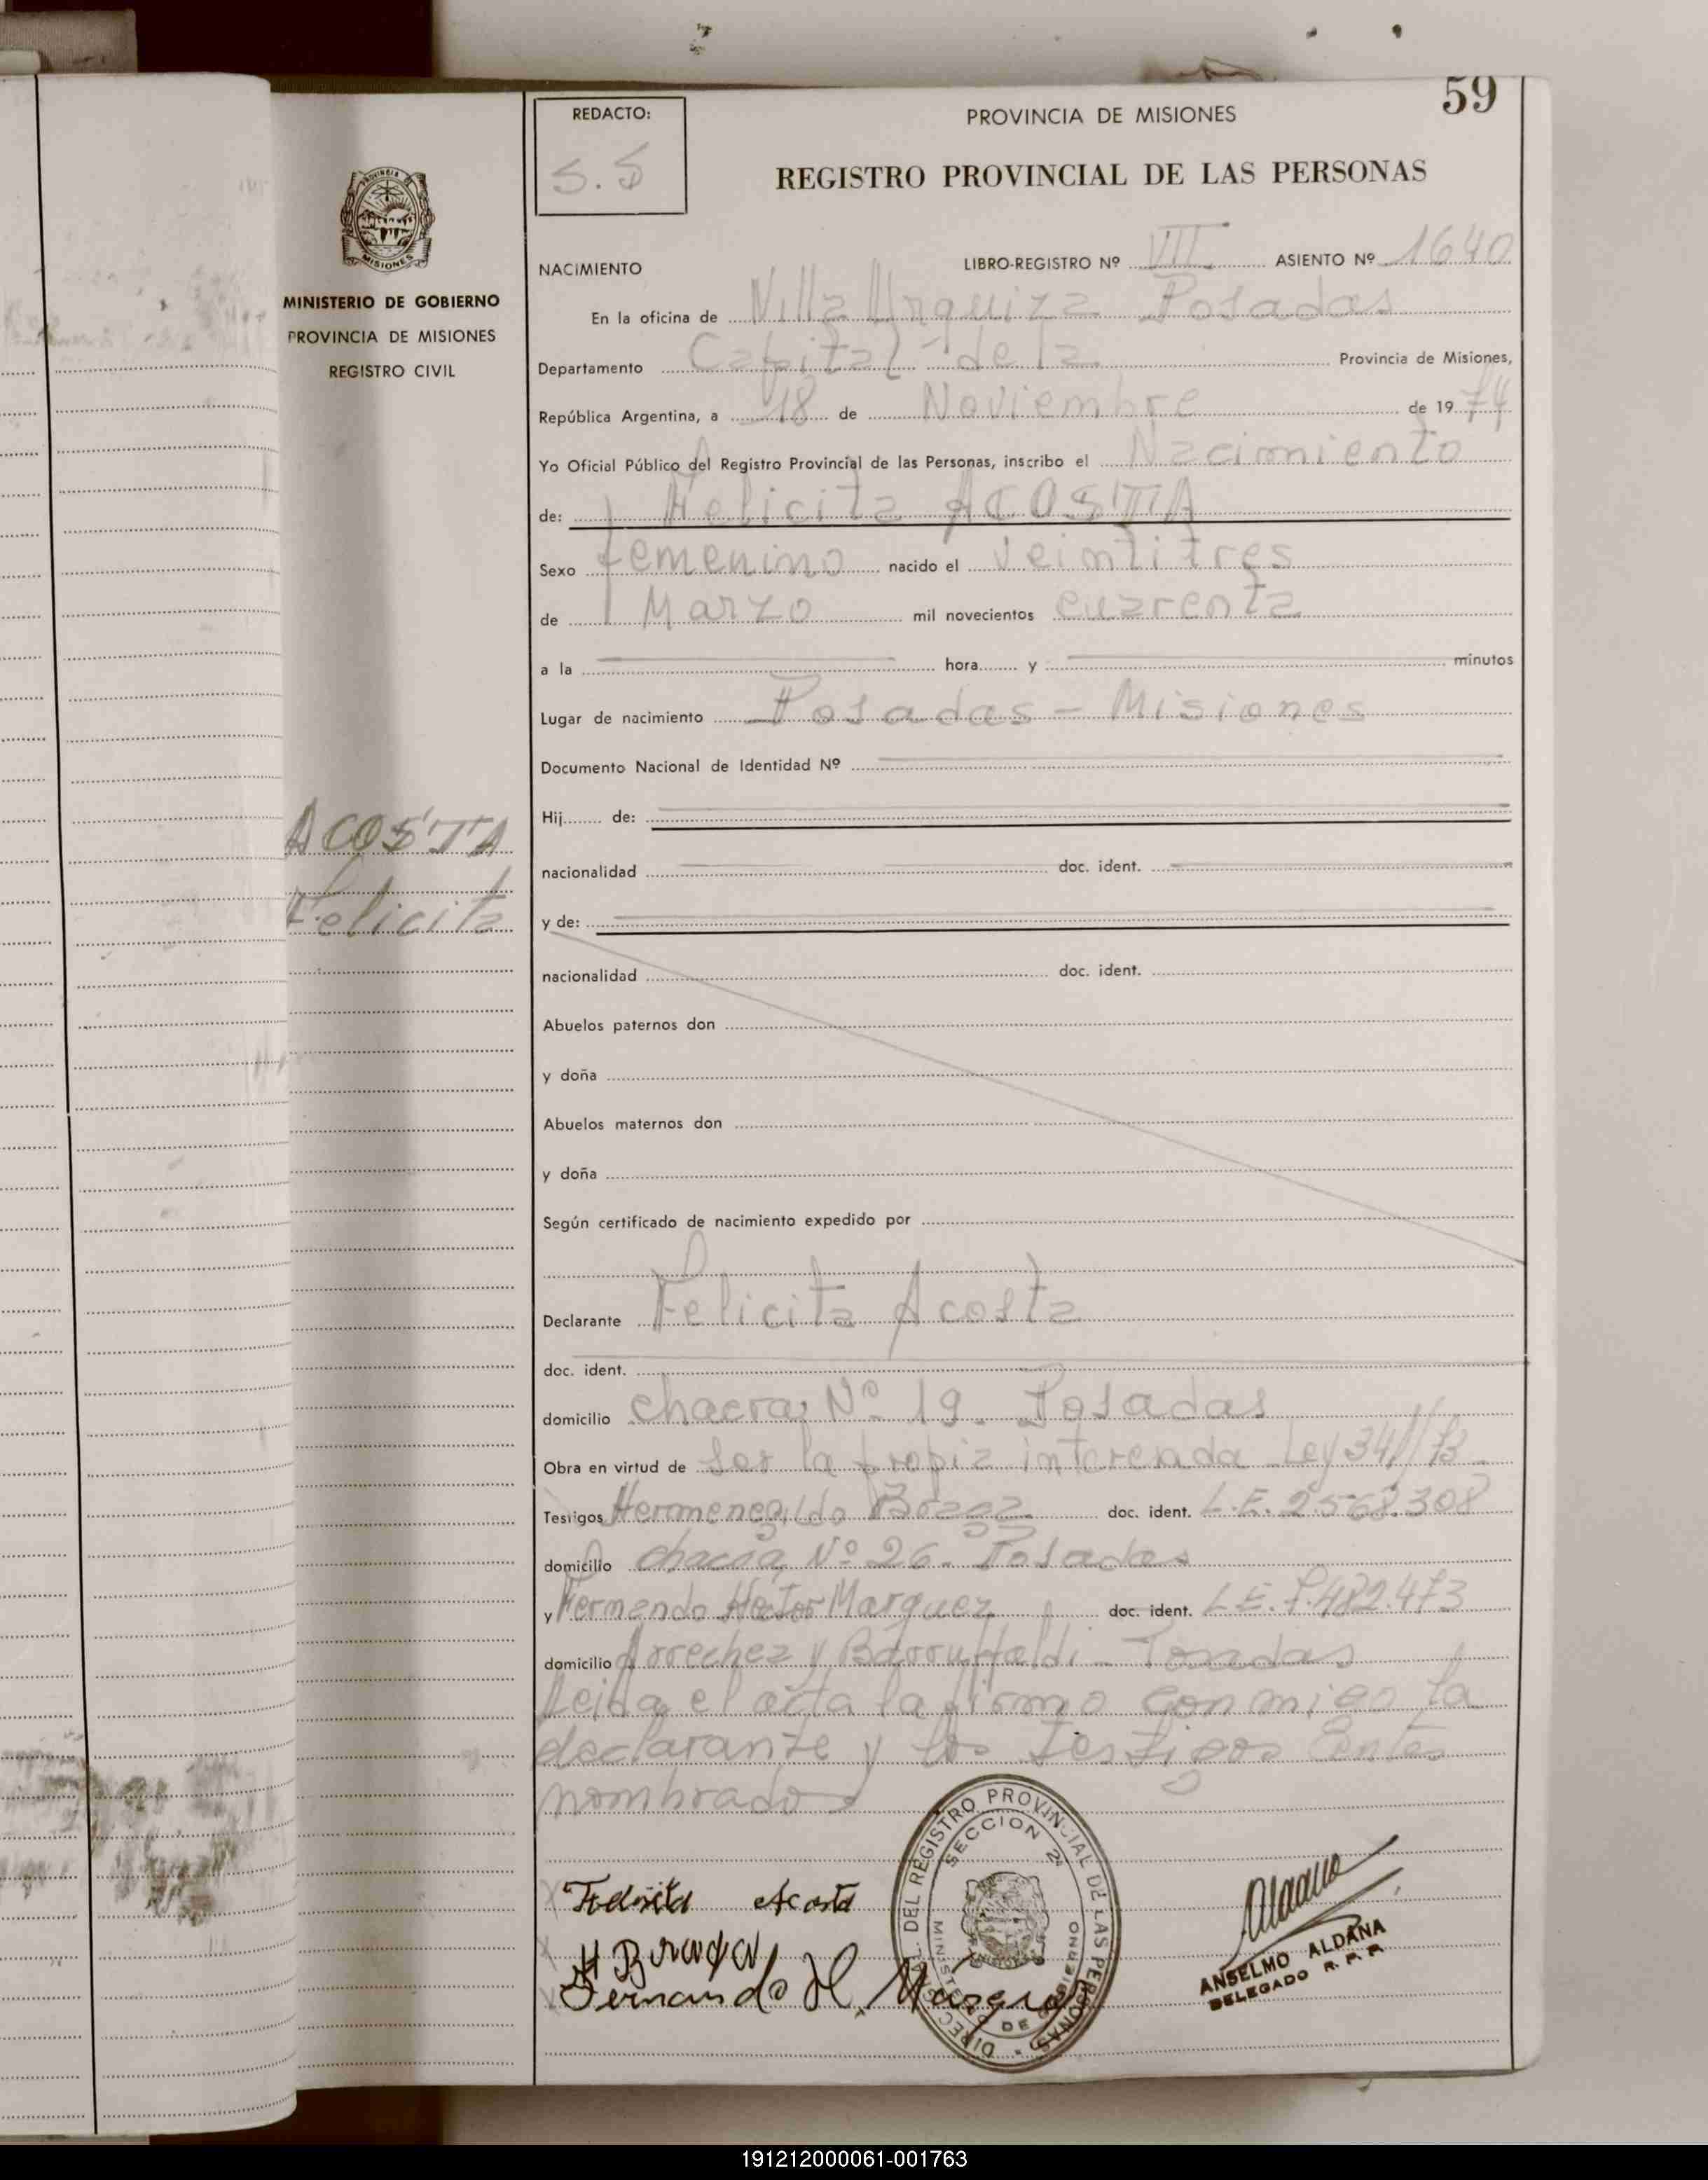 59
REDACTO:
S.S
PROVINCIA DE MISIONES
REGISTRO PROVINCIAL DE LAS PERSONAS
PROVINCIA DE
MISIONES
MINISTERIO DE GOBIERNO
PROVINCIA DE MISIONES
REGISTRO CIVIL
ACOSTA
Felicita
NACIMIENTO LIBRO-REGISTRO Nº VII ASIENTO Nº 1640
En la oficina de Villa Urquiza Posadas
Departamento Capital de la Provincia de Misiones,
República Argentina, a 18 de Noviembre de 1974
Yo Oficial Público del Registro Provincial de las Personas, inscribo el Nacimiento
de: Felicita ACOSTA
Sexo femenino nacido el veintitres
de Marzo mil novecientos cuarenta
a la hora y minutos
Lugar de nacimiento Posadas - Misiones
Documento Nacional de Identidad Nº
Hij de:
nacionalidad doc. ident.
y de:
nacionalidad doc. ident.
Abuelos paternos don
y doña
Abuelos maternos don
y doña
Según certificado de nacimiento expedido por
Declarante Felicita Acosta
doc. ident.
domicilio chacra Nº 19. Posadas
Obra en virtud de ser la propia interesada Ley 341/73
Testigos Hermenegildo doc. ident. L.E. 2.568.308
domicilio chacra Nº 26. Posadas
y Fernando Héctor Marquez doc. ident. L.E. 7.482.473
domicilio Arrechea y Barruffaldi - Posadas
Leida el acta la firmo conmigo la
declarante y los testigos antes
nombrados
Felicita Acosta
Fernando H. Marquez
DIRECCION GRAL. DEL REGISTRO PROVINCIAL DE LAS PERSONAS
SECCION 2ª
MINISTERIO DE GOBIERNO
ANSELMO ALDANA
DELEGADO R. P. P.
191212000061-001763